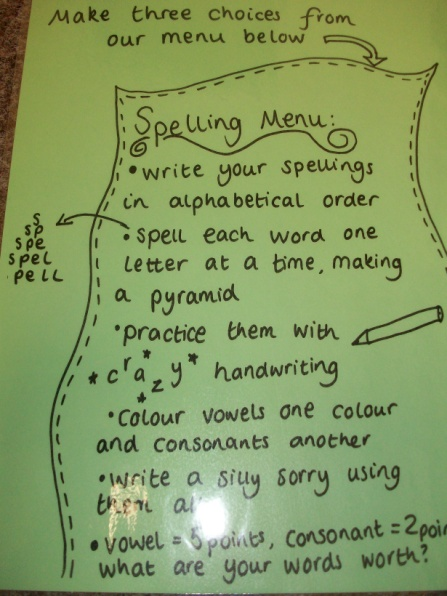 Make three choices from
our menu below
Spelling Menu:
• write your spellings
in alphabetical order
• spell each word one
letter at a time, making
a pyramid
s
sp
spe
spel
pell
• practice them with
* c r a z y * handwriting
• Colour vowels one colour
and consonants another
• write a silly sorry using
them
• vowel = 5 points, consonant = 2 poin
what are your words worth?